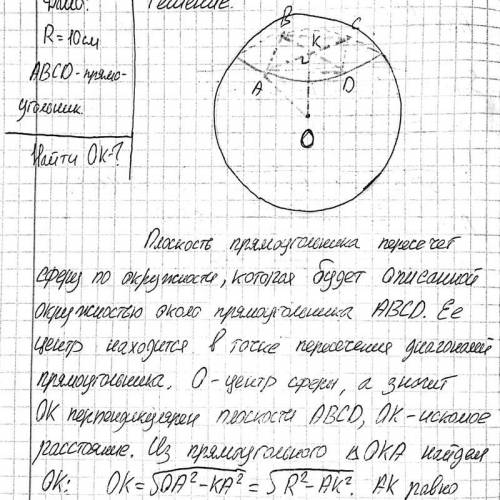 Решение.
R = 10 см
ABCD - прямо-
угольник
Найти OK - ?
B
C
K
r
A
D
O
Плоскость прямоугольника пересечет
сферу по окружности, которая будет описанной
окружностью около прямоугольника ABCD. Ее
центр находится в точке пересечения диагоналей
прямоугольника. O - центр сферы, а значит
OK перпендикулярен плоскости ABCD, OK - искомое
расстояние. Из прямоугольного △OKA найдем
OK: OK = √OA² - KA² = √R² - AK². AK равно